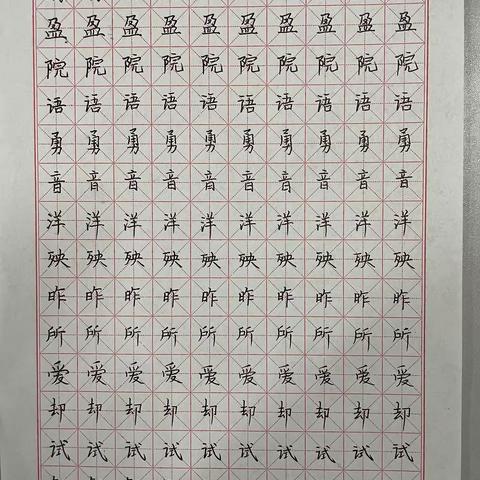 盈盈盈盈盈盈盈盈盈盈
院院院院院院院院院院
语语语语语语语语语语
勇勇勇勇勇勇勇勇勇勇
音音音音音音音音音音
洋洋洋洋洋洋洋洋洋洋
殃殃殃殃殃殃殃殃殃殃
昨昨昨昨昨昨昨昨昨昨
所所所所所所所所所所
爱爱爱爱爱爱爱爱爱爱
却却却却却却却却却却
试试试试试试试试试试